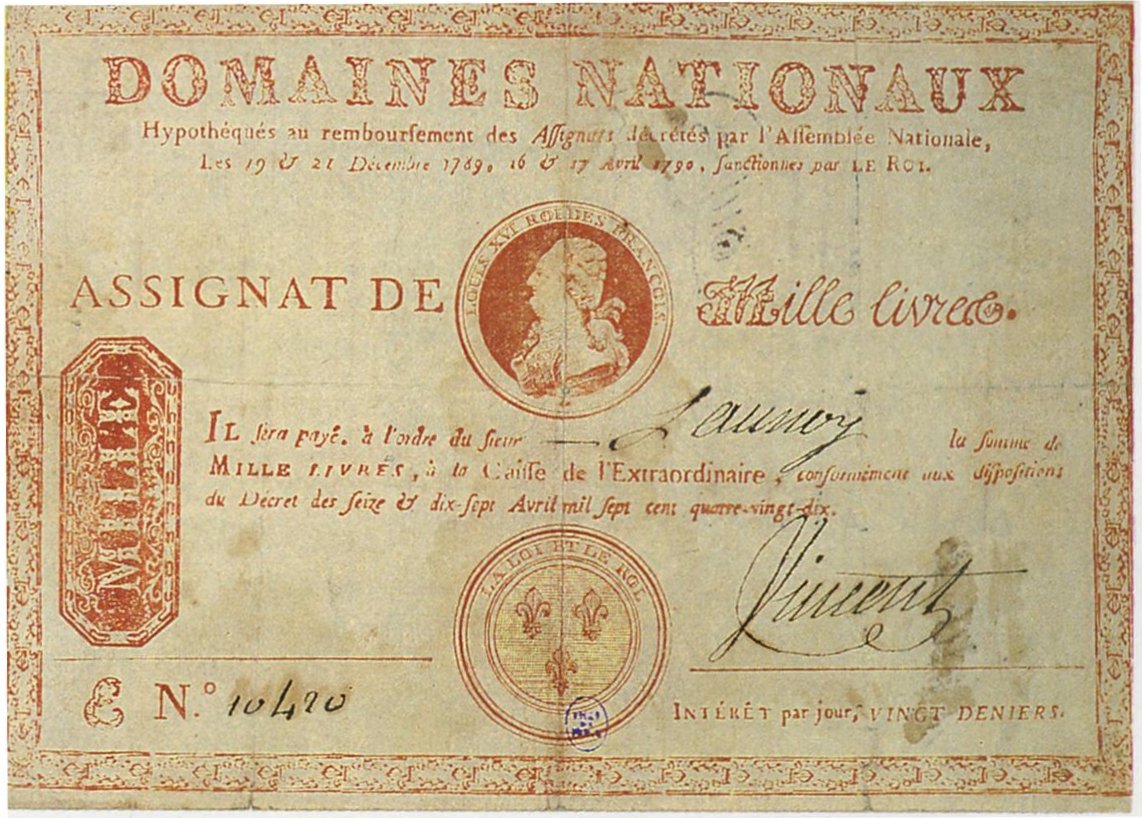 DOMAINES NATIONAUX
Hypothéqués au rembourſement des Aſſignats décrétés par l'Aſſemblée Nationale,
Les 19 & 21 Décembre 1789, 16 & 17 Avril 1790, ſanctionnés par LE ROI.
LOUIS XVI ROI DES FRANÇOIS
ASSIGNAT DE Mille livres.
MILLE
IL ſera payé, à l'ordre du ſieur — Launoy la ſomme de
MILLE LIVRES, à la Caiſſe de l'Extraordinaire, conformément aux diſpoſitions
du Décret des ſeize & dix-ſept Avril mil ſept cent quatre-vingt-dix.
LA LOI ET LE ROI.
Vincent
N.º 10420
INTÉRÊT par jour, VINGT DENIERS.